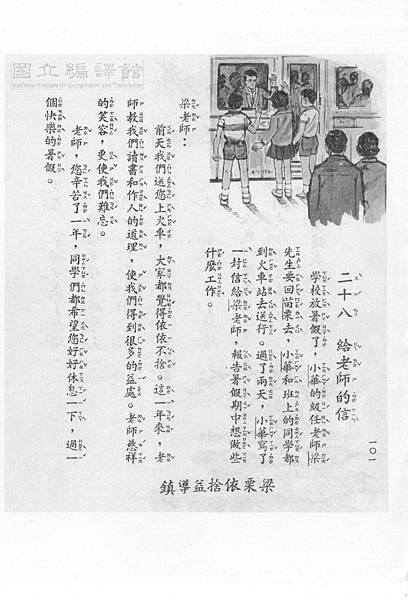 國立編譯館
National Institute for Compilation and Translation
101
二十八 給老師的信
學校放暑假了，小華的級任老師梁
先生要回苗栗去，小華和班上的同學都
到火車站去送行。過了兩天，小華寫了
一封信給梁老師，報告暑假期中想做些
什麼工作。
梁老師：
前天我們送您上火車，大家都覺得依依不捨。這一年來，老
師教我們讀書和作人的道理，使我們得到很多的益處。老師慈祥
的笑容，更使我們難忘。
老師，您辛苦了一年，同學們都希望您好好休息一下，過一
個快樂的暑假。
梁栗依捨益導鎮